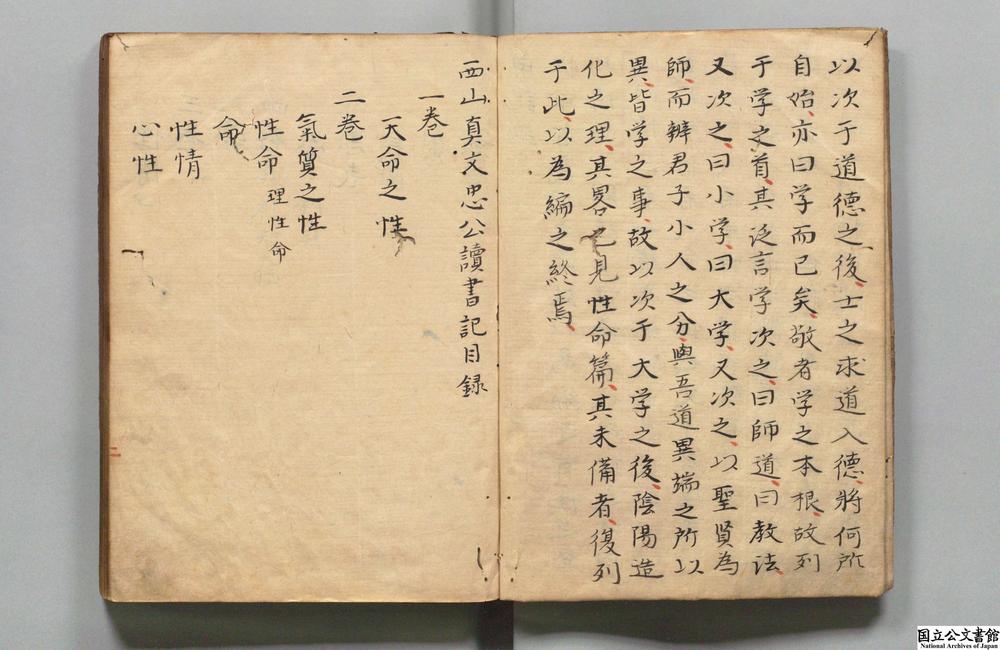 以次于道德之後士之求道入德將何所
自始亦曰学而已矣敬者学之本根故列
于学之首其泛言学次之曰師道曰教法
又次之曰小学曰大学又次之以聖賢為
師而辨君子小人之分與吾道異端之所以
異皆学之事故以次于大学之後陰陽造
化之理其畧已見性命篇其未備者復列
于此以為編之終焉
西山真文忠公讀書記目録
一卷
天命之性
二卷
氣質之性
性命 理性命
命
性情
心性
二
国立公文書館
National Archives of Japan